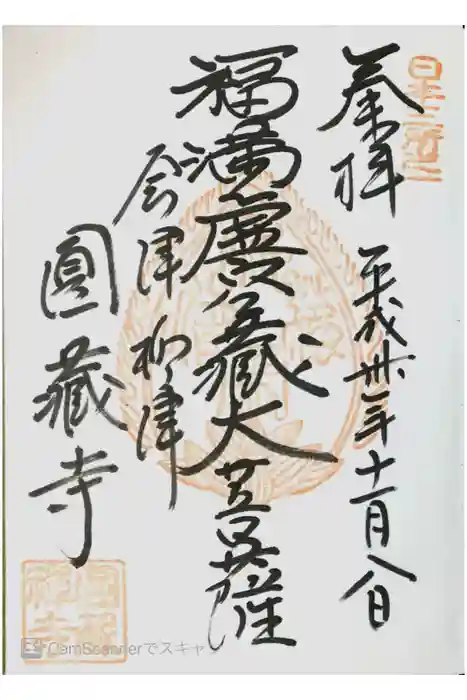 奉拝 平成卅年十一月八日
福満虚空藏大菩薩
会津柳津
圓藏寺
CS CamScannerでスキャ